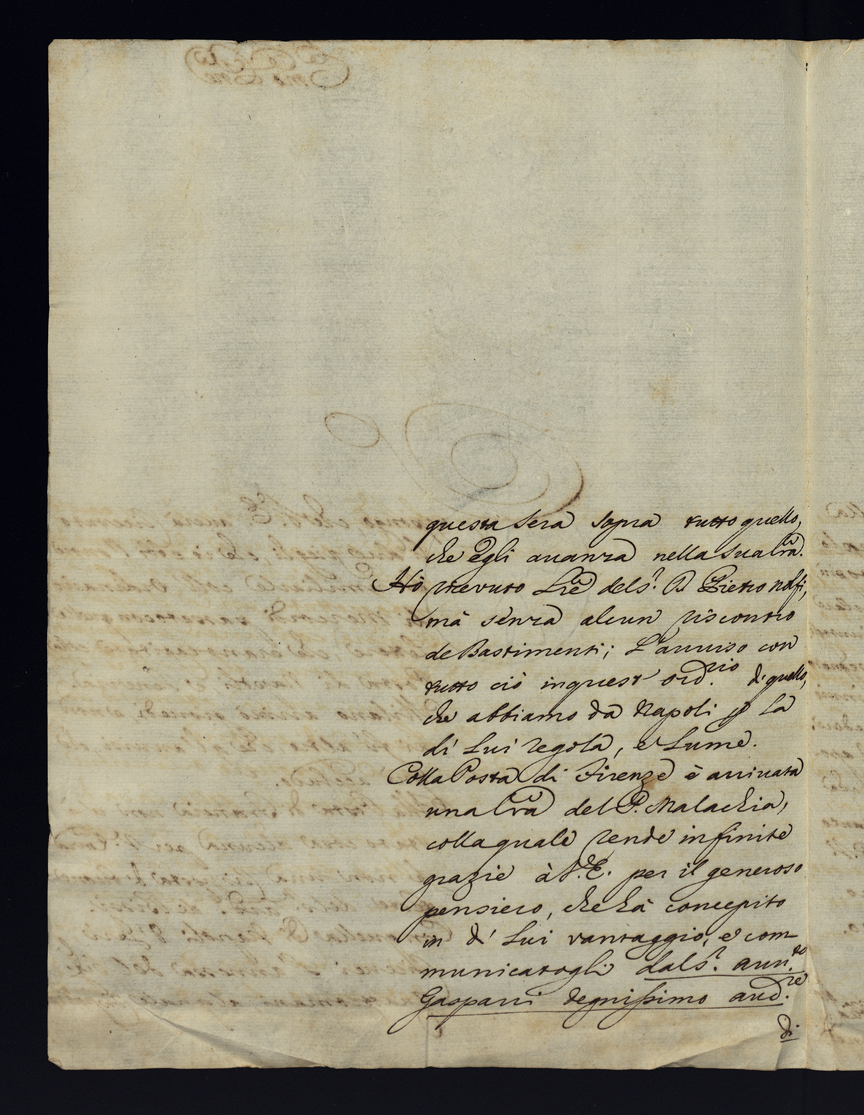 questa sera sopra tutto quello,
che egli avanza nella sua lrã.
Hò ricevuto lrẽ del s.r D Pietro
mà senza alcun riscontro
de Bastimenti; L'avviso con
tutto ciò in quest' ord.rio di quello,
che abbiamo da Napoli p la
di lui regola, e lume.
Colla Posta di Firenze è arrivata
una lrã del P. Malachia,
colla quale rende infinite
grazie à V. E. per il generoso
pensiero, che hà concepito
in di lui vantaggio, e com-
municatogli dal s.r avv.to
Gasparri degnissimo aud.re
di